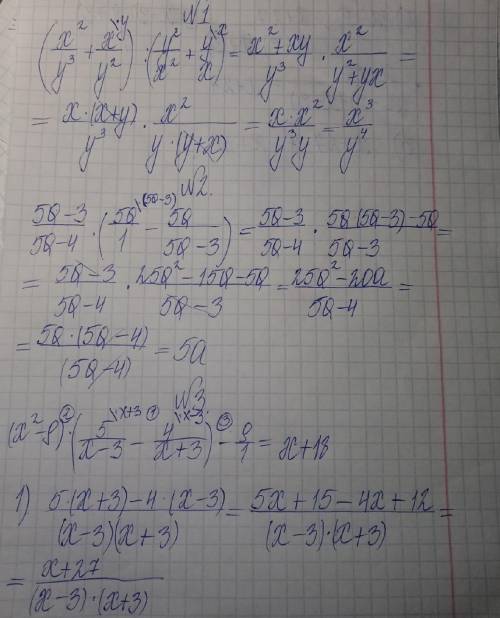 №1
(x²/y³ + x\y/y²) · (y²/x² + y\x/x) = x²+xy/y³ · x²/y²+yx =
= x·(x+y)/y³ · x²/y·(y+x) = x·x²/y³y = x³/y⁴
№2.
5a-3/5a-4 · (5a\(5a-3)/1 - 5a/5a-3) = 5a-3/5a-4 · 5a(5a-3)-5a/5a-3 =
= 5a-3/5a-4 · 25a²-15a-5a/5a-3 = 25a²-20a/5a-4 =
= 5a·(5a-4)/(5a-4) = 5a
№3
(x²-9)② · (5\x+3/x-3 ① - 4\x-3/x+3) ③ - 9/1 = x+18
1) 5·(x+3)-4·(x-3)/(x-3)(x+3) = 5x+15-4x+12/(x-3)·(x+3) =
= x+27/(x-3)·(x+3)